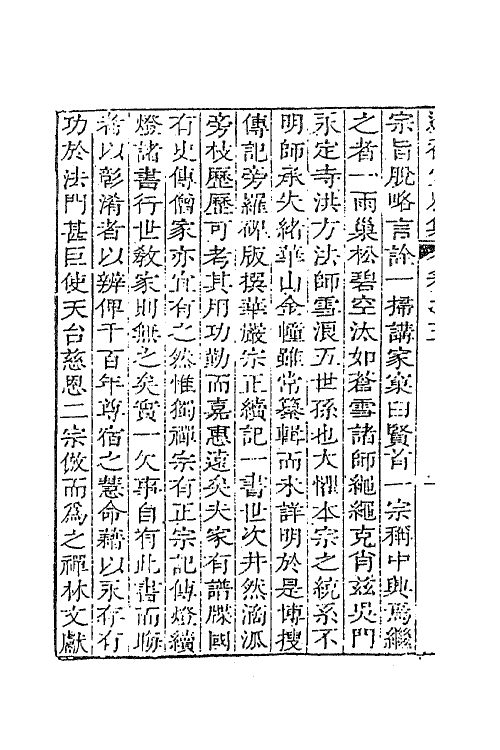 宗旨脫略言詮一掃講家窠臼賢首一宗稱中興焉繼
之者一雨巢松碧空汰如蒼雪諸師繩繩克肖茲吳門
永定寺洪方法師雪浪五世孫也大懼本宗之統系不
明師承失緒華山金幢雖常纂輯而未詳明於是博搜
傳記旁羅碑版撰華嚴宗正續記一書世次井然滴派
旁枝歷歷可考其用功勤而嘉惠遠矣夫家有譜牒國
有史傳僧家亦宜有之然惟獨禪宗有正宗記傳燈續
燈諸書行世敎家則無之矣實一欠事自有此書而晦
者以彰淆者以辨俾千百年尊宿之慧命藉以永存有
功於法門甚巨使天台慈恩二宗倣而爲之禪林文獻